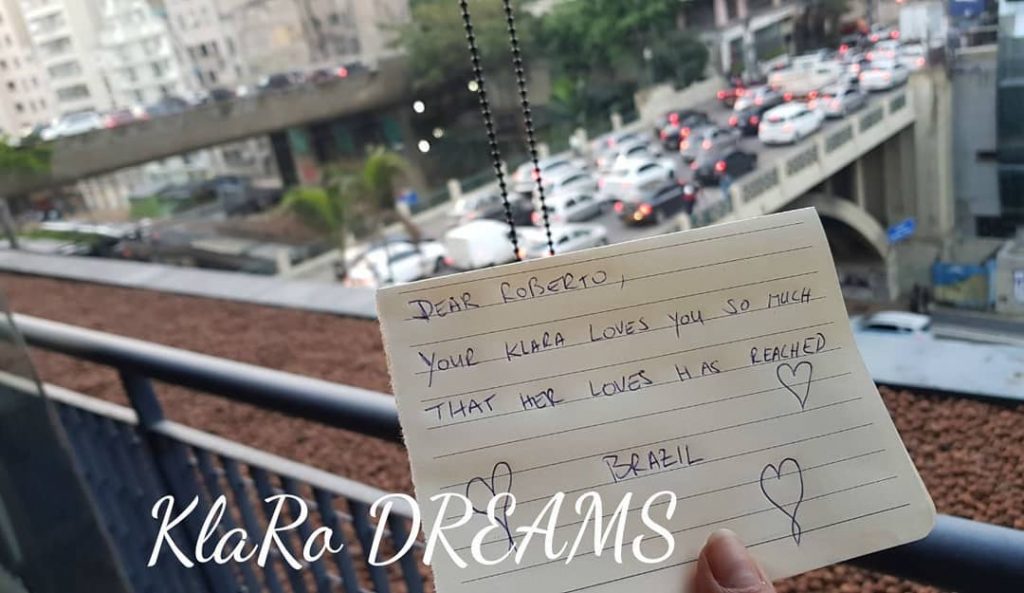 DEAR ROBERTO,
YOUR KLARA LOVES YOU SO MUCH
THAT HER LOVES HAS REACHED
BRAZIL
KlaRo DREAMS